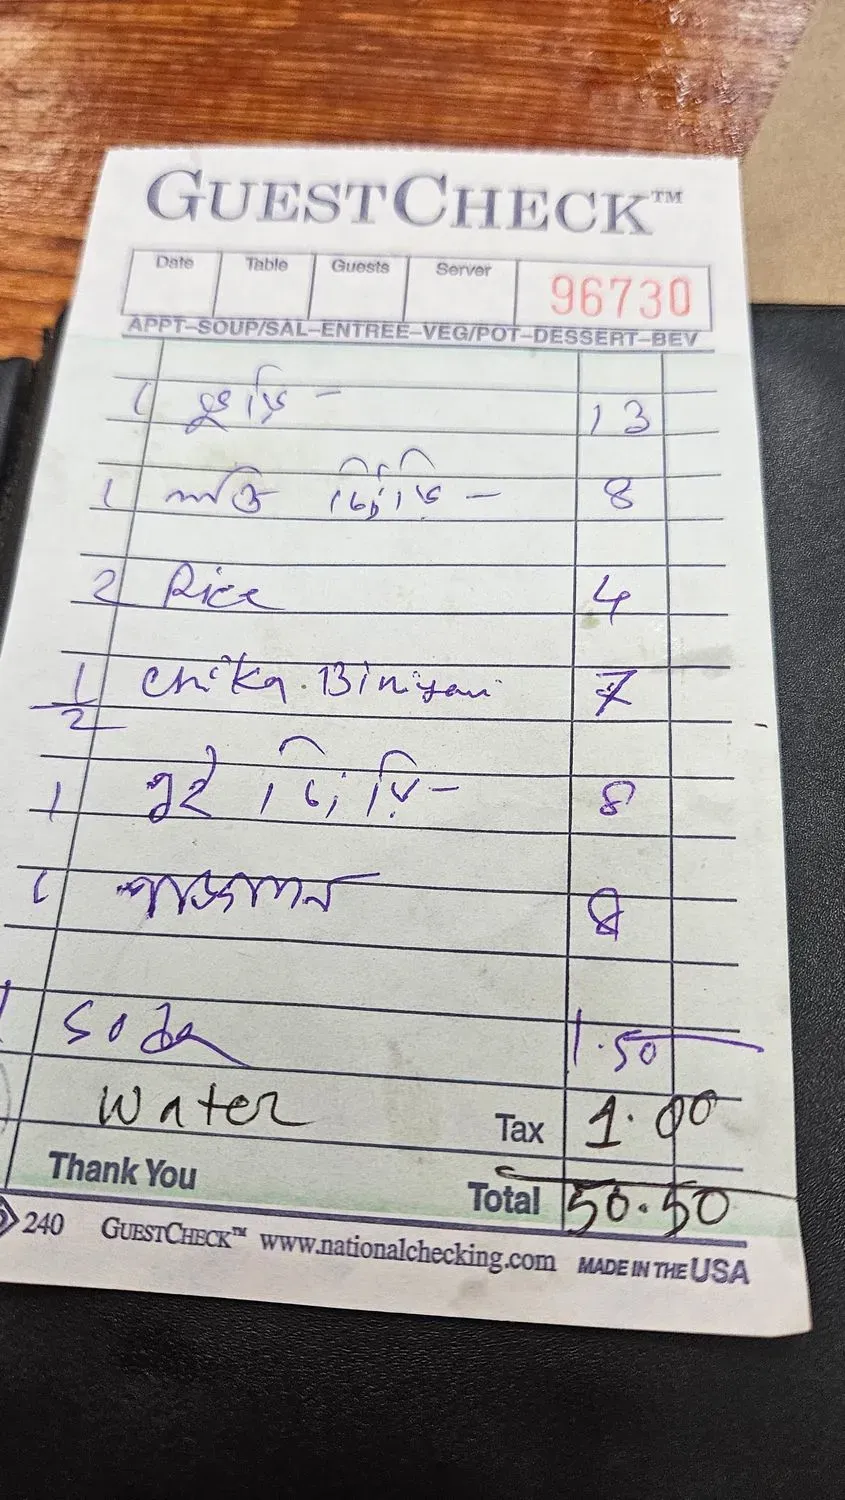 GUESTCHECK™
Date Table Guests Server 96730
APPT–SOUP/SAL–ENTREE–VEG/POT–DESSERT–BEV
1 – 13
1 – 8
2 Rice 4
1/2 Chika. Biniyani 7
1 – 8
1 8
1 Soda 1.50
Water Tax 1.00
Thank You Total 50.50
240 GUESTCHECK™ www.nationalchecking.com MADE IN THE USA